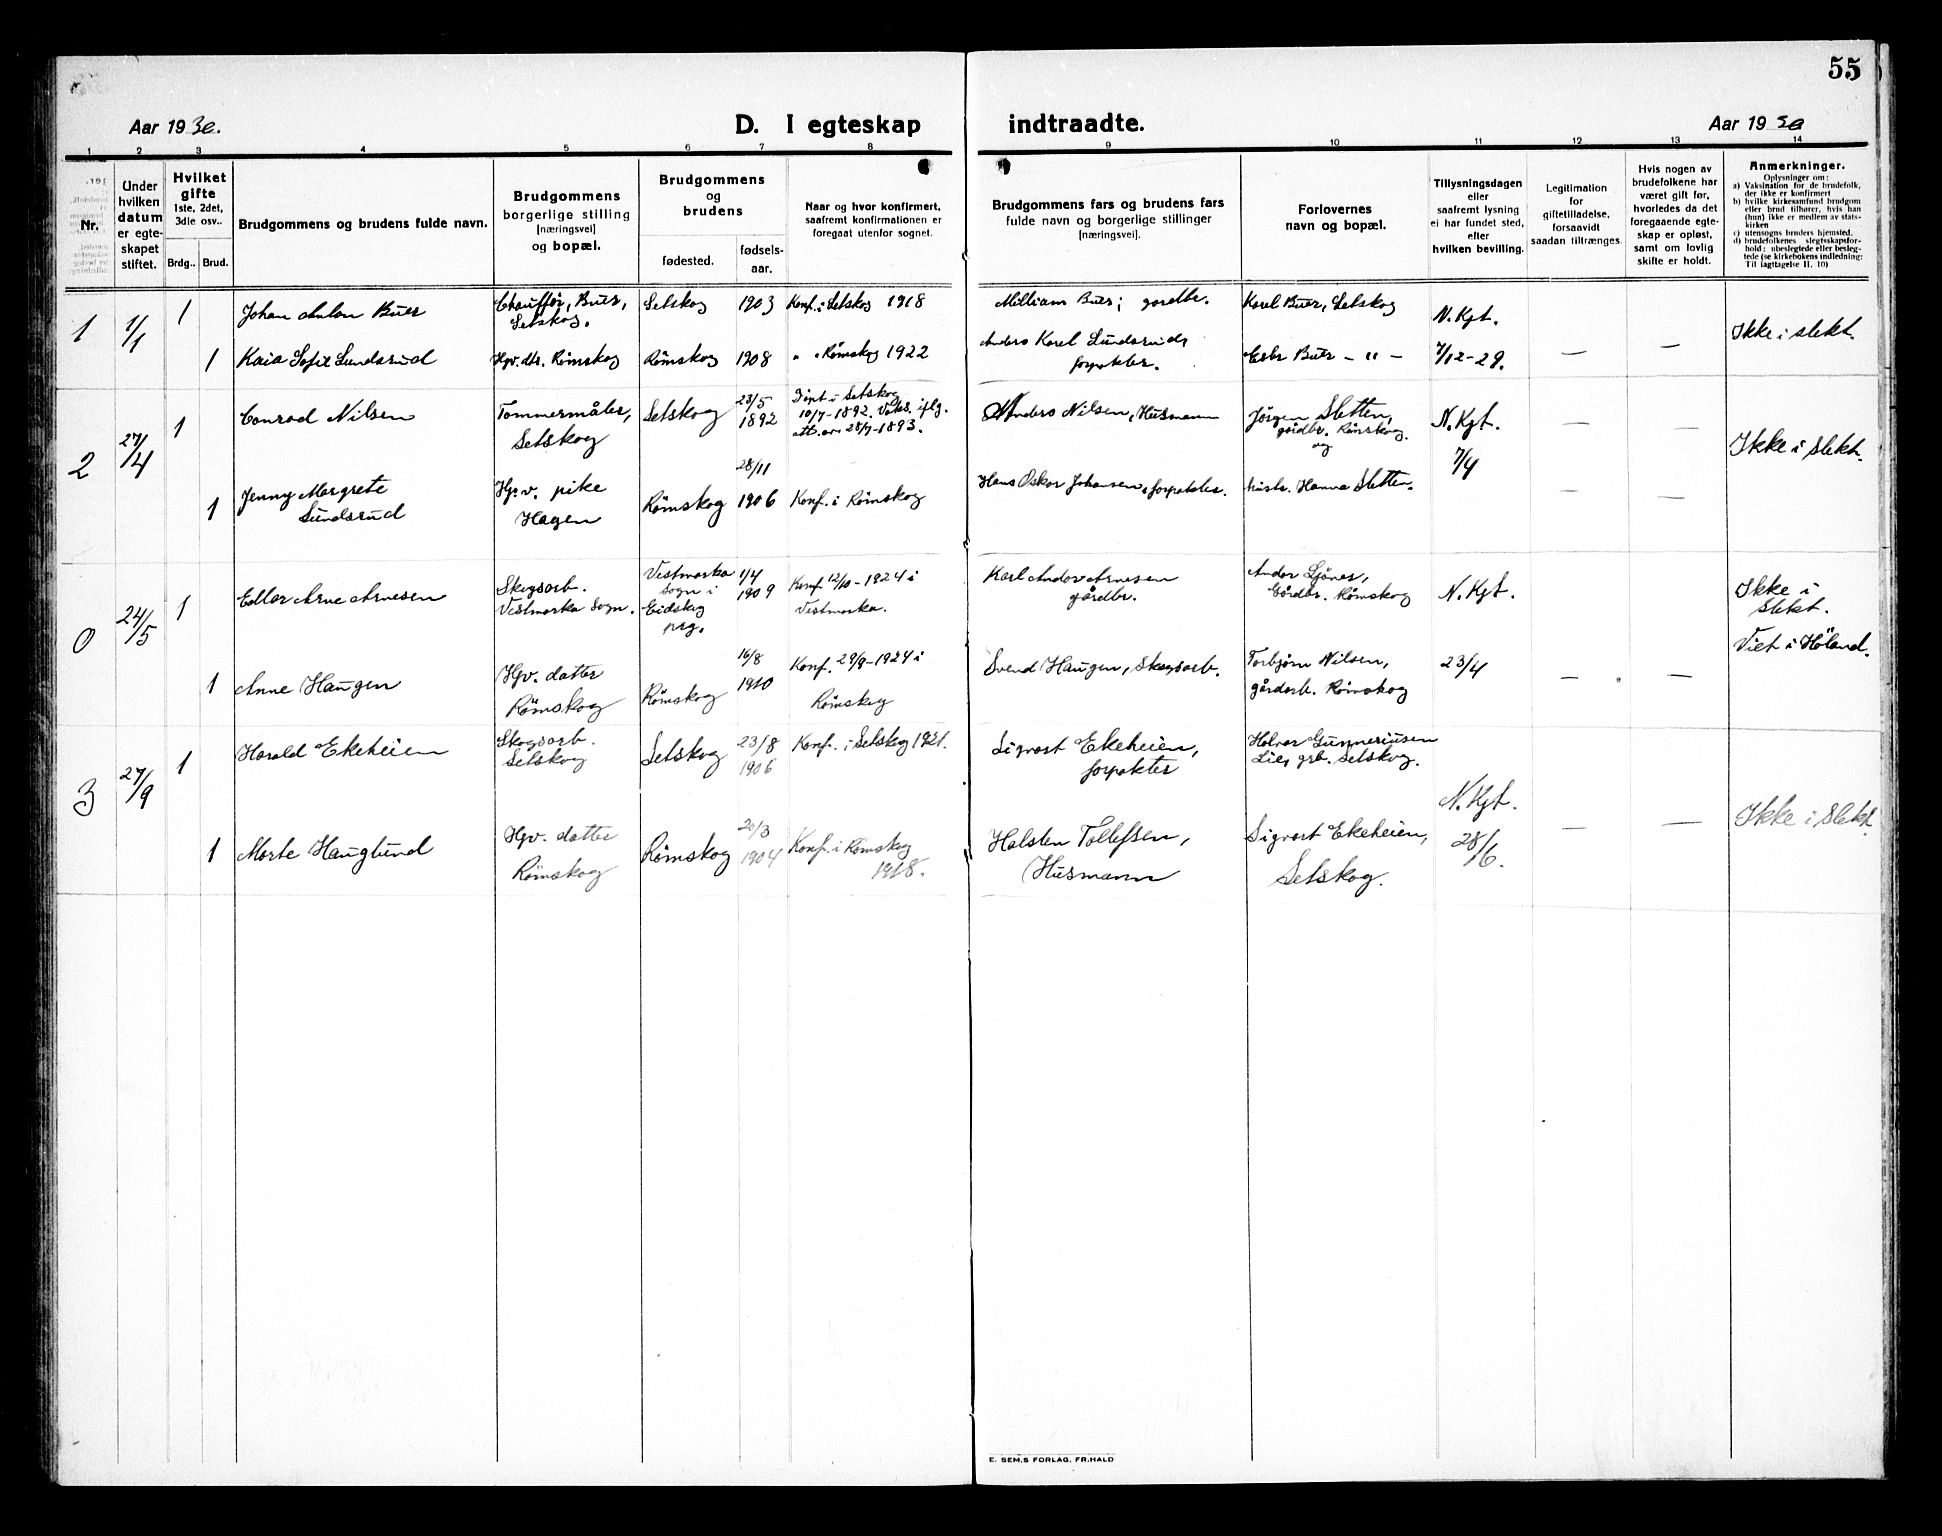 55
Aar 1930.
D. I egteskap
indtraadte.
Aar 1930
1 2 3 4 5 6 7 8 9 10 11 12 13 14
Nr.
Under
hvilken
datum
er egte-
skapet
stiftet.
Hvilket
gifte
1ste, 2det,
3die osv..
Brdg.. Brud.
Brudgommens og brudens fulde navn.
Brudgommens
borgerlige stilling
[næringsvei]
og bopæl.
Brudgommens
og
brudens
fødested.
fødsels-
aar.
Naar og hvor konfirmert,
saafremt konfirmationen er
foregaat utenfor sognet.
Brudgommens fars og brudens fars
fulde navn og borgerlige stillinger
(næringsvei).
Forlovernes
navn og bopæl.
Tillysningsdagen
eller
saafremt lysning
ei har fundet sted,
efter
hvilken bevilling.
Legitimation
for
giftetilladelse,
forsaavidt
saadan tiltrænges.
Hvis nogen av
brudefolkene har
været gift før,
hvorledes da det
foregaaende egte-
skap er opløst,
samt om lovlig
skifte er holdt.
Anmerkninger.
Oplysninger om:
a) Vaksination for de brudefolk,
der ikke er konfirmert
b) hvilke kirkesamfund brudgom
eller brud tilhører, hvis han
(hun) ikke er medlem av stats-
kirken
c) utensogns bruders hjemsted.
d) brudefolkenes slegtsskapsfor-
hold: ubeslegtede eller besleg-
tede (se kirkebokens indledning:
Til iagttagelse II. 10)
1
1/1
1
Johan Anton Buer
Chauffør, Buer,
Setskog.
Setskog
1903
Konf. i Setskog 1918
William Buer, gardbr.
Karel Buer, Setskog
N. Kgt.
Ikke i slekt.
1
Kaia Sofie Lundsrud
Hgv. dtr. Rømskog
Rømskog
1908
" " Rømskog 1922
Anders Karel Lundsrud,
forpakter.
Esbr Buer — " —
7/12-29.
—
—
2
27/4
1
Conrad Nilsen
Tømmermåler,
Setskog
Setskog
23/5
1892
Døpt i Setskog
10/7-1892. Vaks. iflg.
att. av 28/7-1893.
Anders Nilsen, Husmann
Jørgen Sletten,
gårdbr. Rømskog.
og
N. Kgt.
7/4
—
—
Ikke i Slekt.
1
Jenny Margrete
Lundsrud
Hgv. pike
Hagen
Rømskog
28/11
1906
Konf. i Rømskog
Hans Oskar Johansen, forpakter.
hustr. Hanna Sletten.
—
—
0
24/5
1
Edlar Arne Arnesen
Skogsarb.
Vestmarka Sogn.
Vestmarka
sogn i
Eidskog
prg.
1/4
1909
Konf. 12/10-1924 i
Vestmarka.
Karl Andor Arnesen
gårdbr.
Andor Sjönes,
Gårdbr. Rømskog
N. Kgt.
Ikke i
Slekt.
Viet i Høland.
1
Anne Haugen
Hgv. datter
Rømskog
Rømskog
16/8
1910
Konf. 29/9-1924 i
Rømskog
Svend Haugen, Skogsarb.
Torbjørn Nilsen,
gårdarb. Rømskog
23/4
—
—
3
27/9
1
Harald Ekeheien
Skogsarb.
Setskog
Setskog
23/8
1906
Konf. i Setskog 1921.
Sigvart Ekeheien,
forpakter
Halvor Gunneriusen
Lie, grb. Setskog.
N. Kgt.
28/6.
Ikke i Slekt.
1
Marte Hauglund
Hgv. datter
Rømskog
Rømskog
20/3
1904
Konf. i Rømskog
1918.
Halsten Tollefsen,
Husmann
Sigvart Ekeheien,
Setskog.
—
—
E. SEM,S FORLAG, FR.HALD